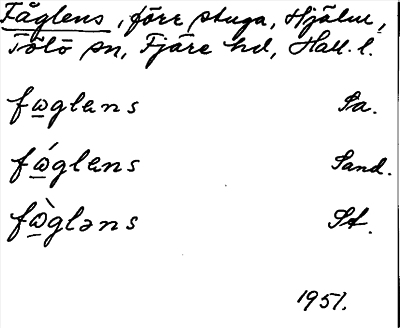 Fåglens, förr stuga, Hjälm,
Tölö sn, Fjäre hd, Hall. l.
fωglens Sa.
fώglens Sand.
fὼgləns St.
1951.